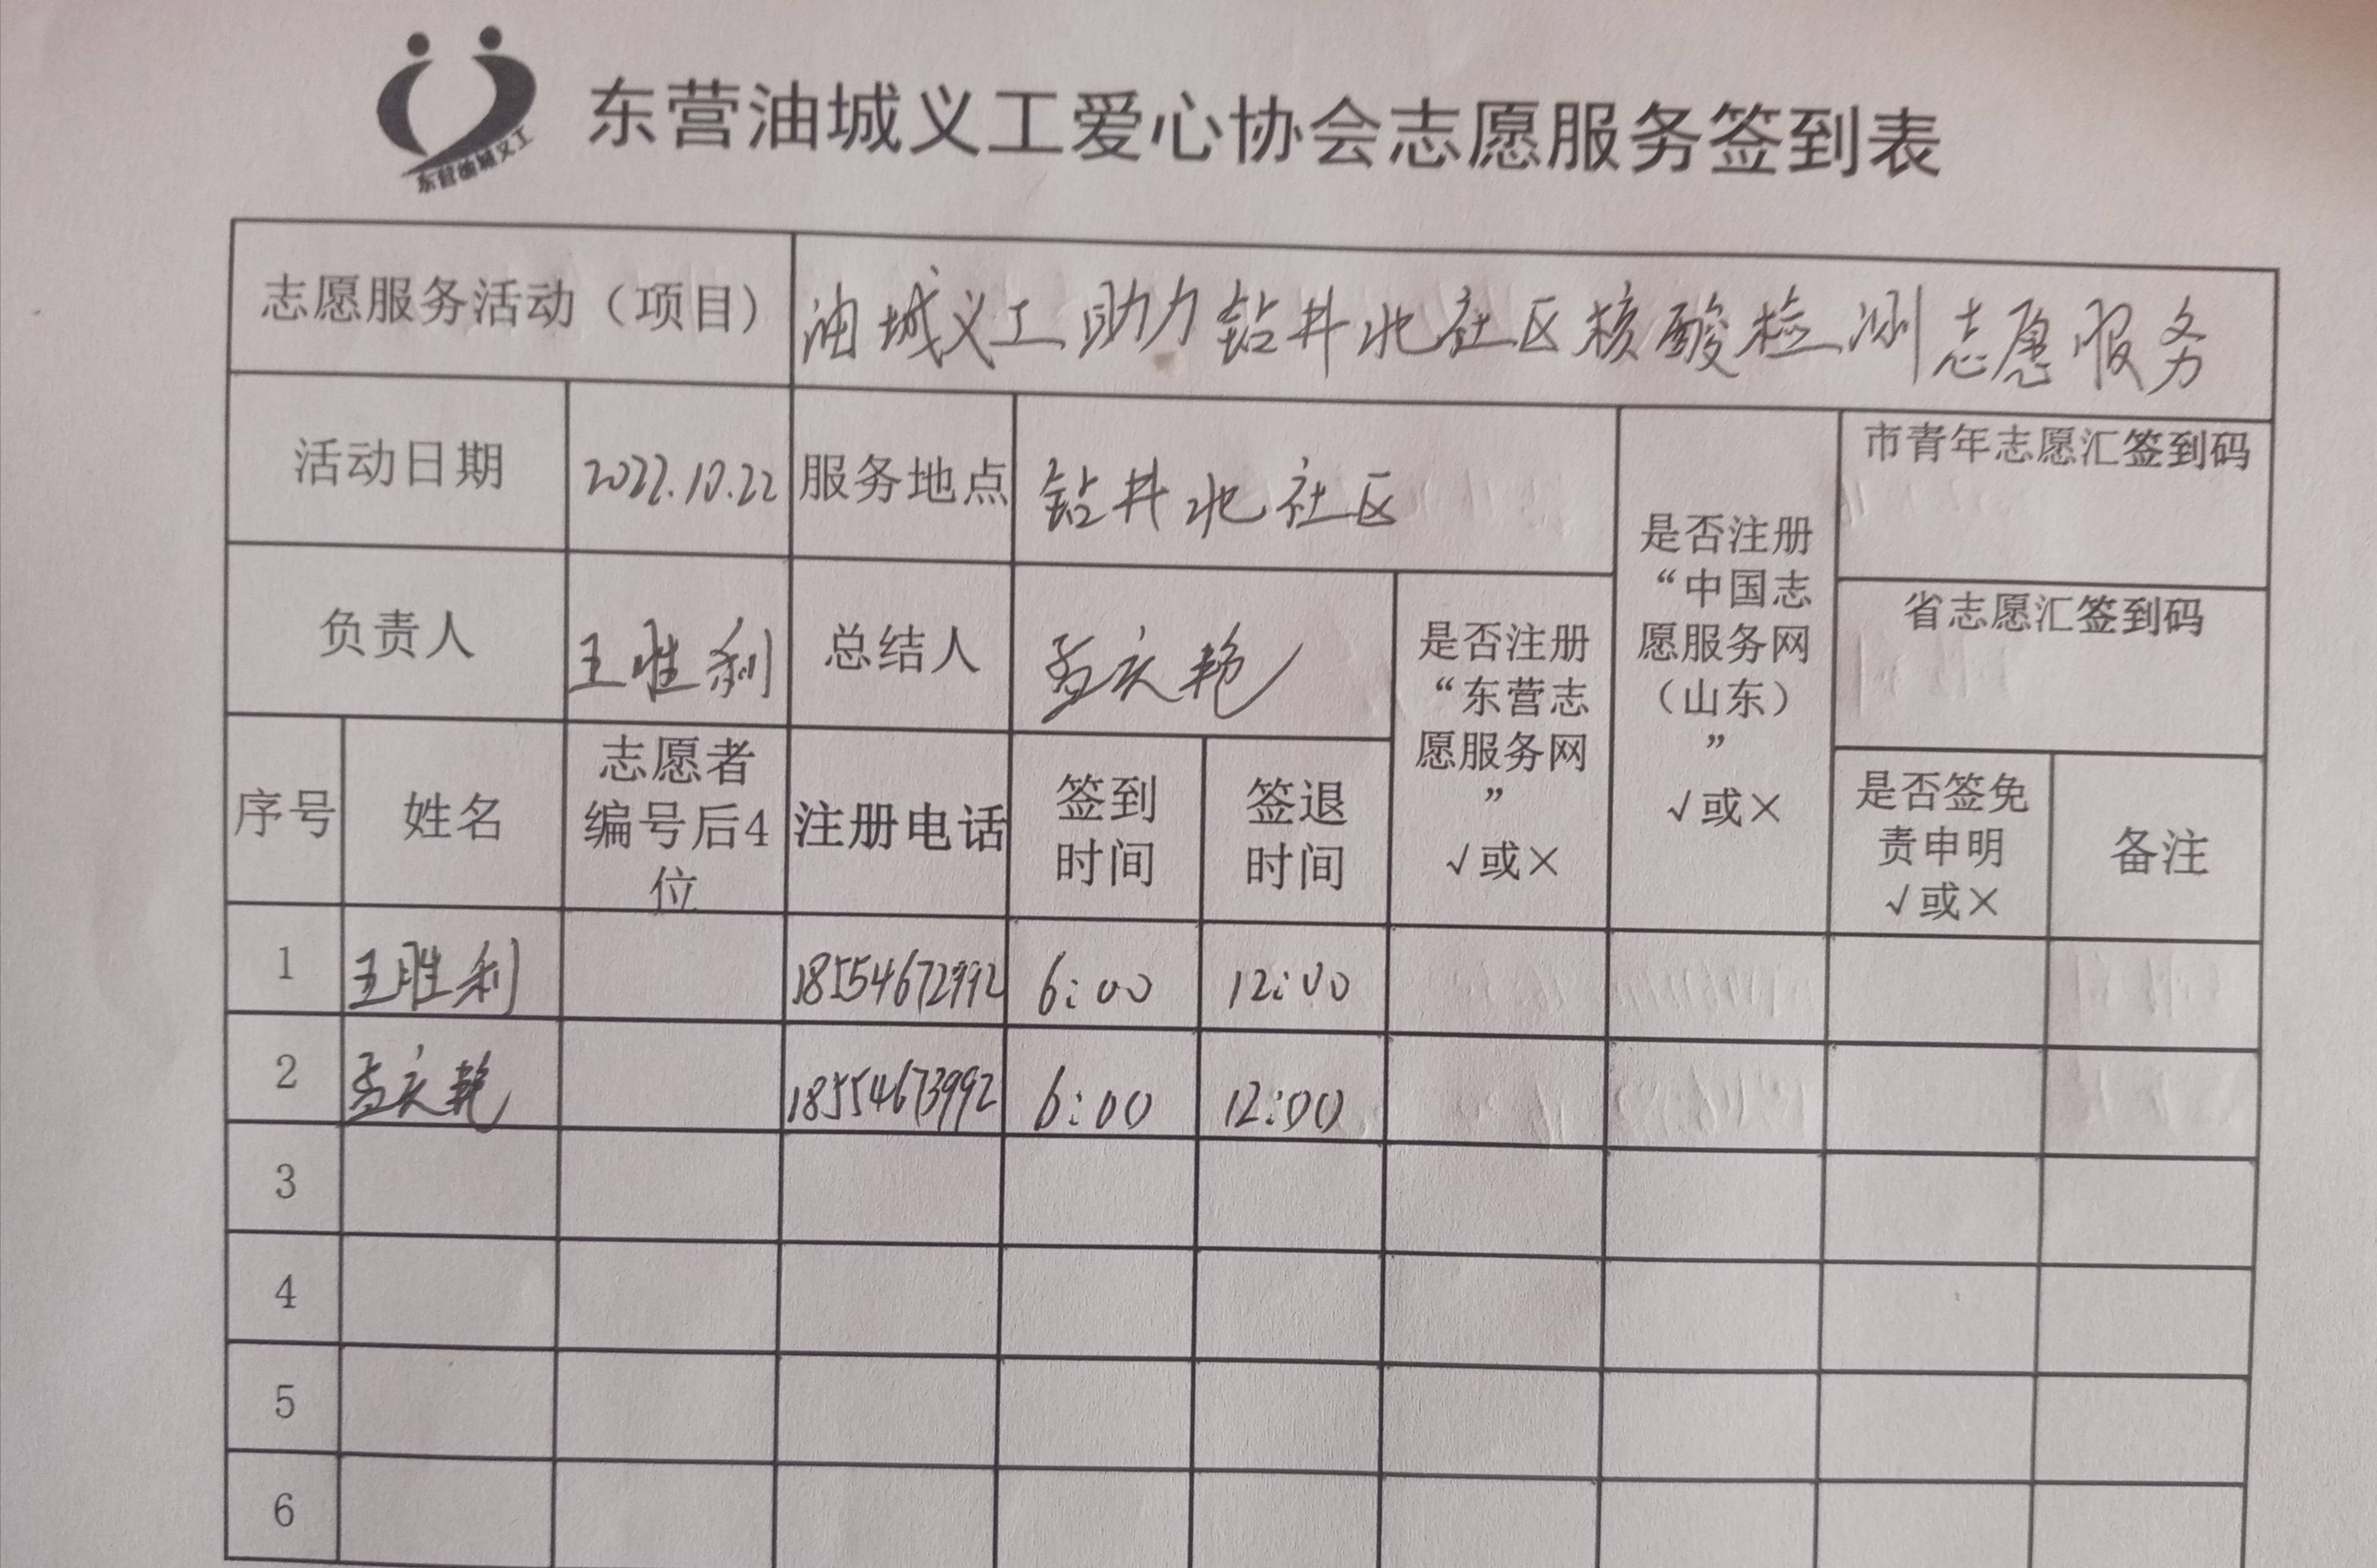 东营油城义工
东营油城义工爱心协会志愿服务签到表
志愿服务活动（项目） 油城义工助力钻井北社区核酸检测志愿服务
活动日期 2022.10.22 服务地点 钻井北社区
市青年志愿汇签到码
负责人 王胜利 总结人 孟庆艳
省志愿汇签到码
是否注册
“东营志
愿服务网
”
√或×
是否注册
“中国志
愿服务网
（山东）
”
√或×
序号 姓名
志愿者
编号后4
位
注册电话
签到
时间
签退
时间
是否签免
责申明
√或×
备注
1 王胜利 18554672992 6:00 12:00
2 孟庆艳 18554673992 6:00 12:00
3
4
5
6